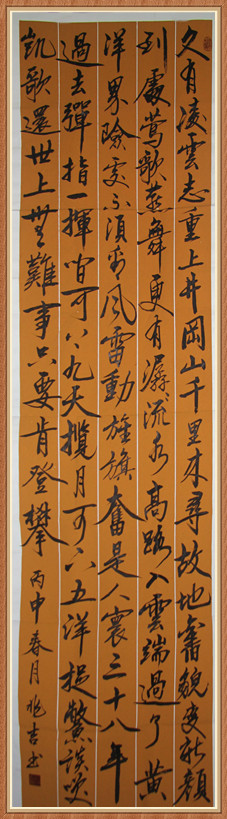 久有凌雲志重上井岡山千里來尋故地舊貌變新顏
到處鶯歌燕舞更有潺潺流水高路入雲端過了黃
洋界險處不須看風雷動旌旗奮是人寰三十八年
過去彈指一揮間可上九天攬月可下五洋捉鱉談笑
凱歌還世上無難事只要肯登攀 丙申春月兆吉书